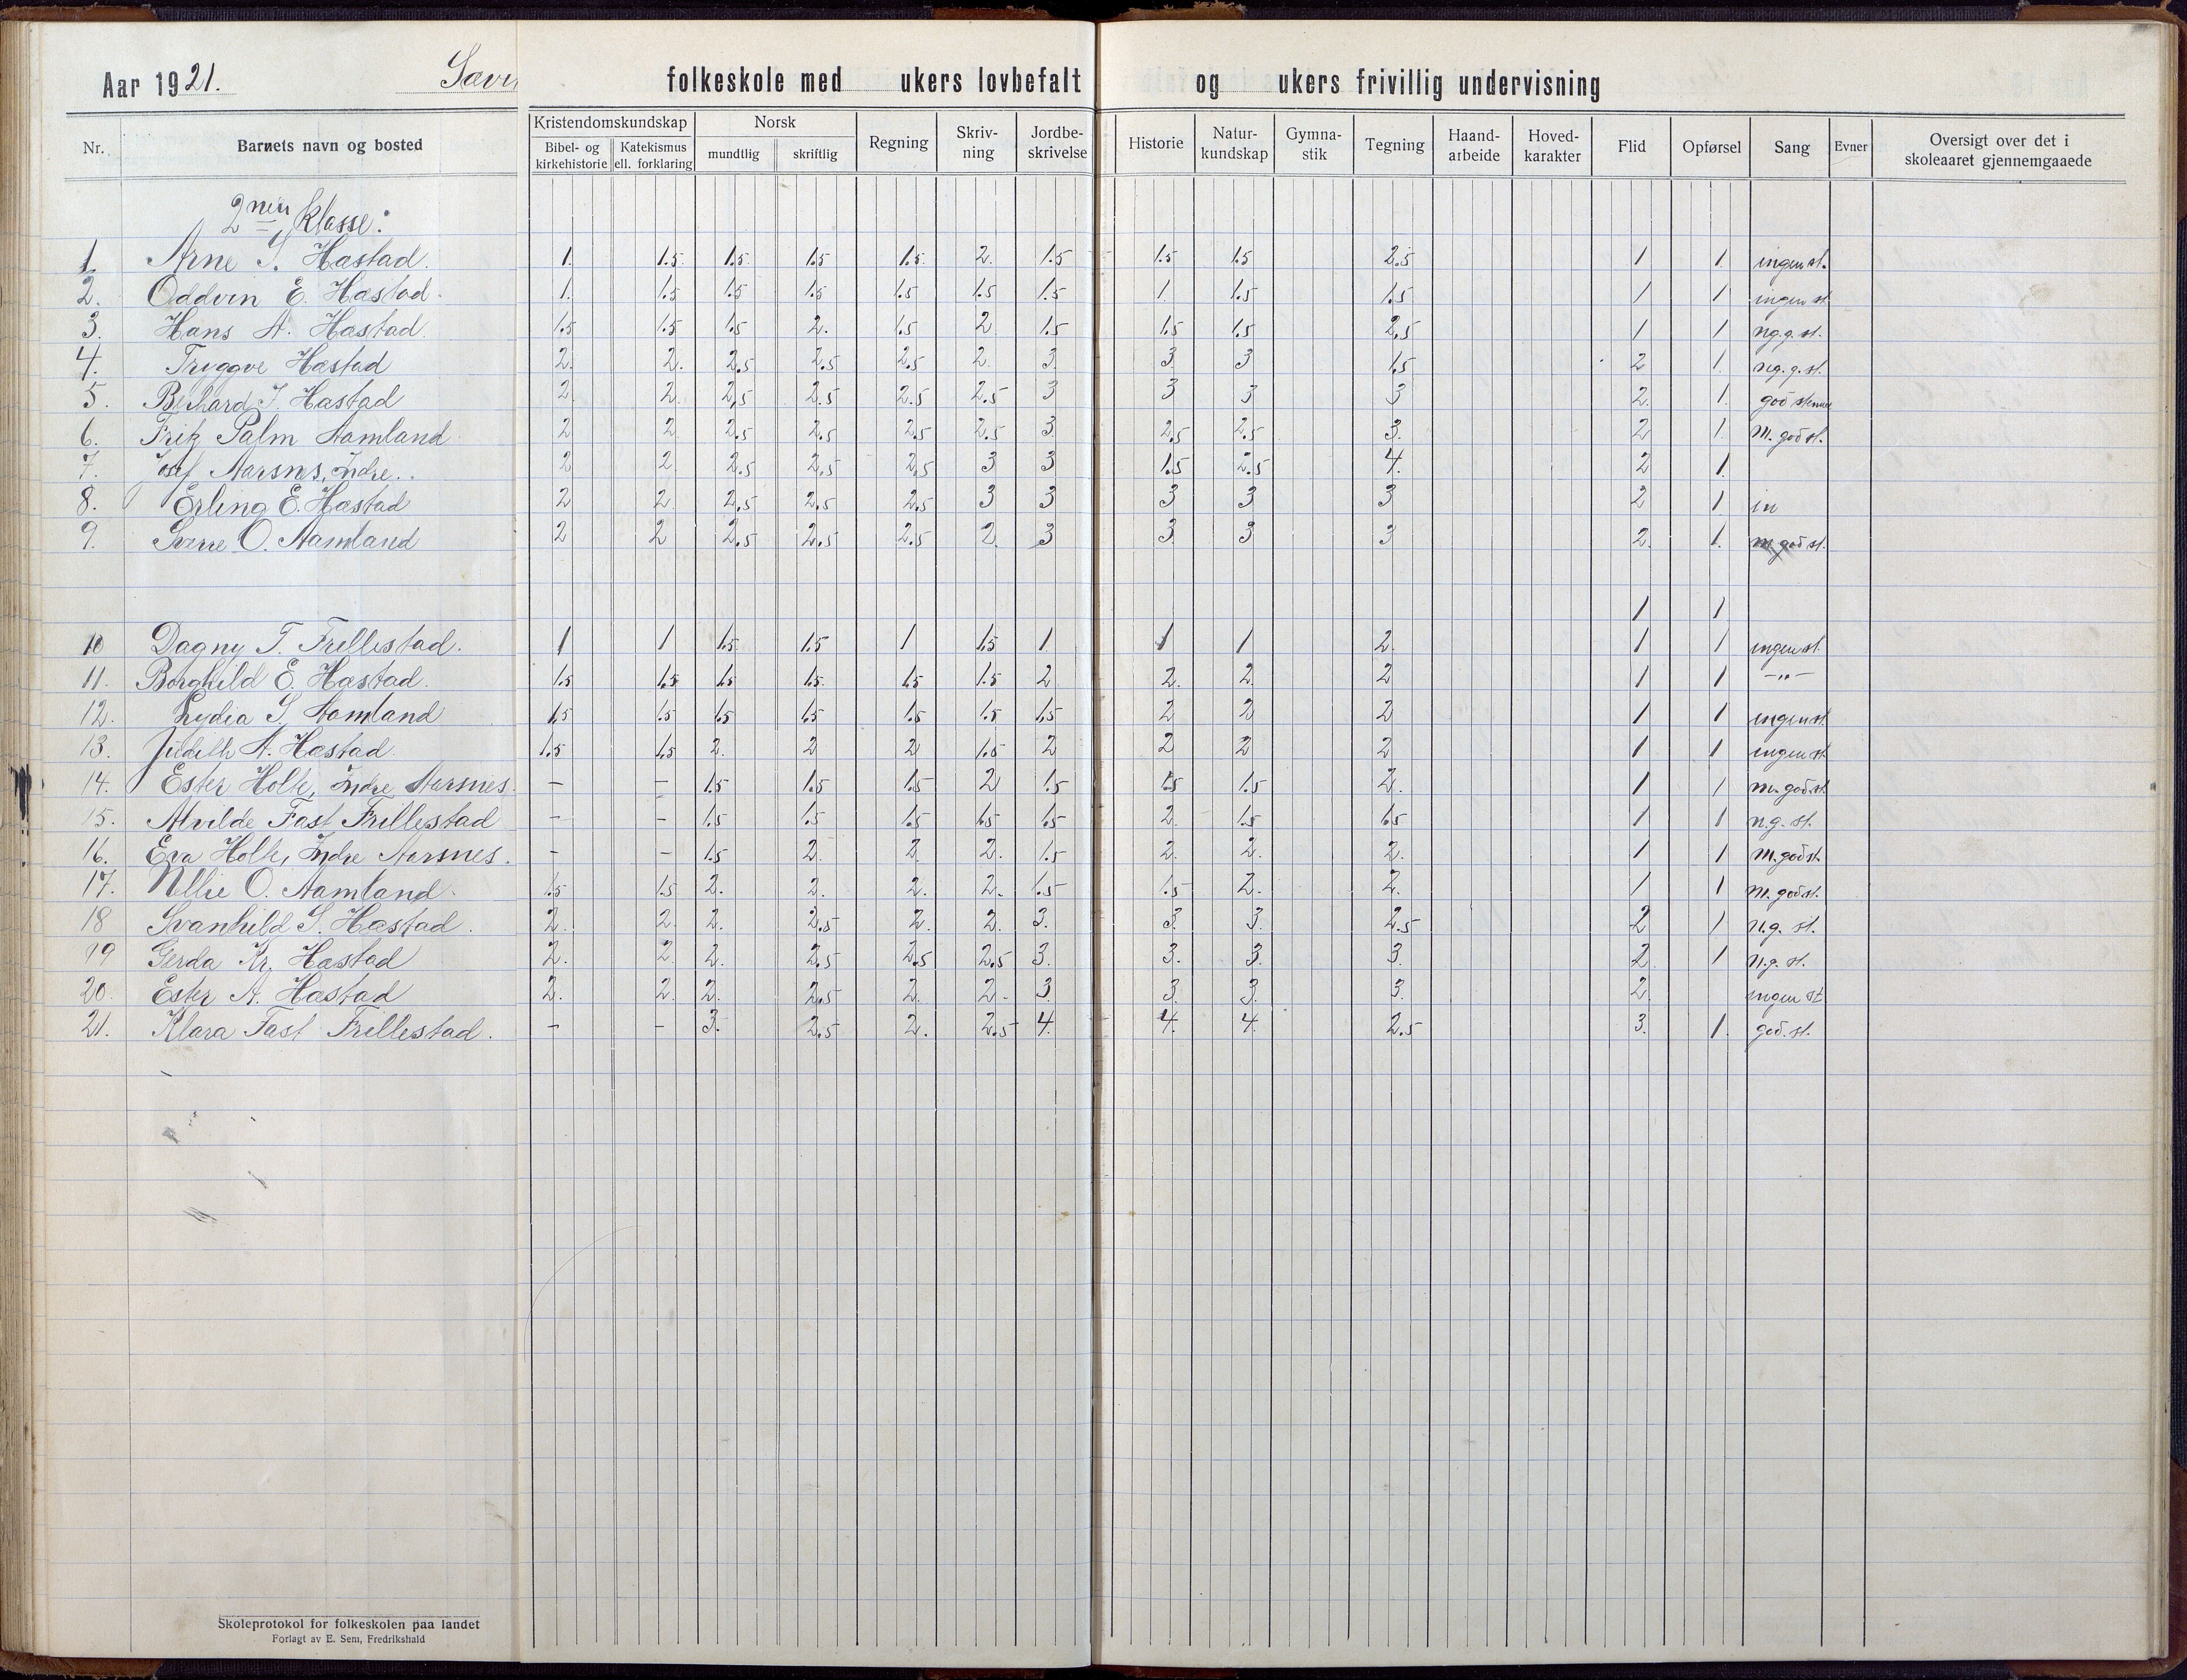 Aar 1921. Sævi folkeskole med ukers lovbefalt og ukers frivillig undervisning
Nr. Barnets navn og bosted Kristendomskundskap Bibel- og kirkehistorie Katekismus ell. forklaring Norsk mundtlig skriftlig Regning Skriv-ning Jordbe-skrivelse Historie Natur-kundskap Gymna-stik Tegning Haand-arbeide Hoved-karakter Flid Opførsel Sang Evner Oversigt over det i skoleaaret gjennemgaaede
2nen klasse:
1. Arne S. Hæstad. 1. 1.5 1.5 1.5 1.5 2. 1.5 1.5 1.5 2.5 1 1 ingen st.
2. Oddvin E. Hæstad. 1. 1.5 1.5 1.5 1.5 1.5 1.5 1. 1.5 1.5 1 1 ingen st
3. Hans A. Hæstad. 1.5 1.5 1.5 2. 1.5 2 1.5 1.5 1.5 2,5 1 1 ng.g. st.
4. Tryggve Hæstad 2. 2. 2,5 2.5 2,5 2. 3. 3. 3 1.5 2 1. ng.g.st.
5. Behard J. Hæstad 2. 2. 2,5 2.5 2.5 2.5 3 3 3 3 2. 1. god stemme
6. Fritz Palm Aamland 2 2 2.5 2.5 2.5 2.5 3. 2,5 2.5 3. 2 1. m. god st.
7. Josef Aarsnes, Indre.. 2 2 2.5 2,5 2,5 3 3 1.5 2.5 4. 2 1.
8. Erling E. Hæstad 2 2 2,5 2,5 2.5 3 3 3 3 3 2 1 in
9. Sverre O. Aamland 2 2 2,5 2.5 2.5 2. 3 3. 3 3 2. 1. m god st.
1 1
10 Dagny T. Frillestad. 1 1 1.5 1.5 1 1.5 1 1 1 2. 1 1 ingen st.
11. Borghild E. Hæstad. 1.5 1.5 1.5 1.5 1.5 1.5 2 2. 2 2 1 1 -"-
12. Lydia S. Aamland 1.5 1.5 1.5 1.5 1.5 1.5 1.5 2 2 2 1 1 ingen st.
13. Judith A. Hæstad. 1.5 1.5 2. 2 2 1.5 2 2 2 2 1 1 ingen st
14. Ester Holte, Indre Aarsnes. – – 1.5 1.5 1.5 2 1.5 1.5 1.5 2. 1 1 m. god st
15. Alvilde Fast Frillestad – – 1.5 1.5 1.5 1.5 1.5 2. 1.5 1.5 1 1 n.g. st.
16. Eva Holte, Indre Aarsnes. – – 1.5 2. 2. 2. 1.5 2. 2. 2. 1 1 m. god st.
17. Nellie O. Aamland. 1.5 1.5 2. 2. 2. 2. 1.5 1.5 2. 2. 1 1 m. god st.
18 Svanhild S. Hæstad. 2. 2. 2. 2,5 2. 2. 3. 3. 3. 2.5 2 1 n.g. st.
19 Gerda Kr. Hæstad 2. 2. 2. 2.5 2.5 2.5 3. 3. 3. 3. 2. 1 n.g. st.
20. Ester A. Hæstad 2. 2. 2. 2.5 2. 2. 3 3. 3. 3. 2. ingen st
21. Klara Fast Frillestad. – – 3. 2.5 2. 2.5 4. 4. 4. 2.5 3. 1. god. st.
Skoleprotokol for folkeskolen paa landet
Forlagt av E. Sem, Fredrikshald